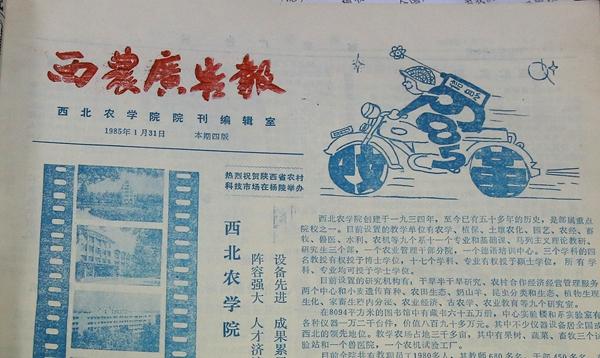 西農廣告報
西北农学院院刊编辑室
1985年1月31日 本期四版
热烈祝贺陕西省农村
科技市场在杨陵举办
西北农学院
设备先进 成果累
阵容强大 人才济
信息
改革
西北农学院创建于一九三四年，至今已有五十多年的历史，是部属重点
院校之一。目前设置的教学单位有农学、植保、土壤农化、园艺、农经、畜
牧、兽医、水利、农机等九个系十一个专业和基础课、马列主义理论教研、
研究生三个部，一个农业管理干部分院，一个德语培训中心。三个学科的四
名教授有权授予博士学位，十七个学科、专业有权授予硕士学位。所有学
科、专业均可授予学士学位。
目前设置的研究机构有：干旱半干旱研究、农村合作经济经营管理服务
两个中心和小麦遗传育种、农田生态、奶山羊、昆虫分类和生态、植物生理
生化、家畜生殖内分泌、农业经济、古农学、农业教育等九个研究室。
在8094平方米的图书馆中有藏书六十五万册，中心实验楼和系实验室有
各种仪器一万二千台件，价值八百九十多万元。其中不少仪器设备居全国或
西北的领先地位。教学农场占地三千多亩，其中有果树、蔬菜、畜牧三个试
验站和一个兽医院，一个农机试验工厂。
目前全院共有教职员工1989多人，其教师680多名，干部450多名，